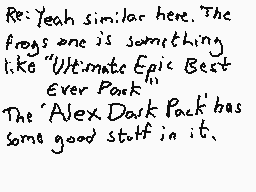 Re: Yeah similar here. The
frogs one is something
like "Ultimate Epic Best
Ever Pack"
The 'Alex Dark Pack' has
some good stuff in it.